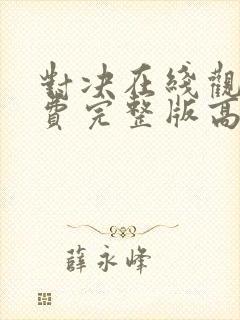 對决在綫觀
費完整版高
薛永峰